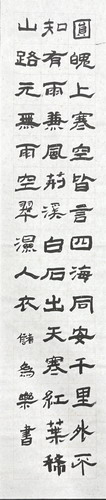 圓魄上寒空皆言四海同安千里外不
知有雨兼風荊溪白石出天寒紅葉稀
山路元無雨空翠濕人衣 儲為樂書